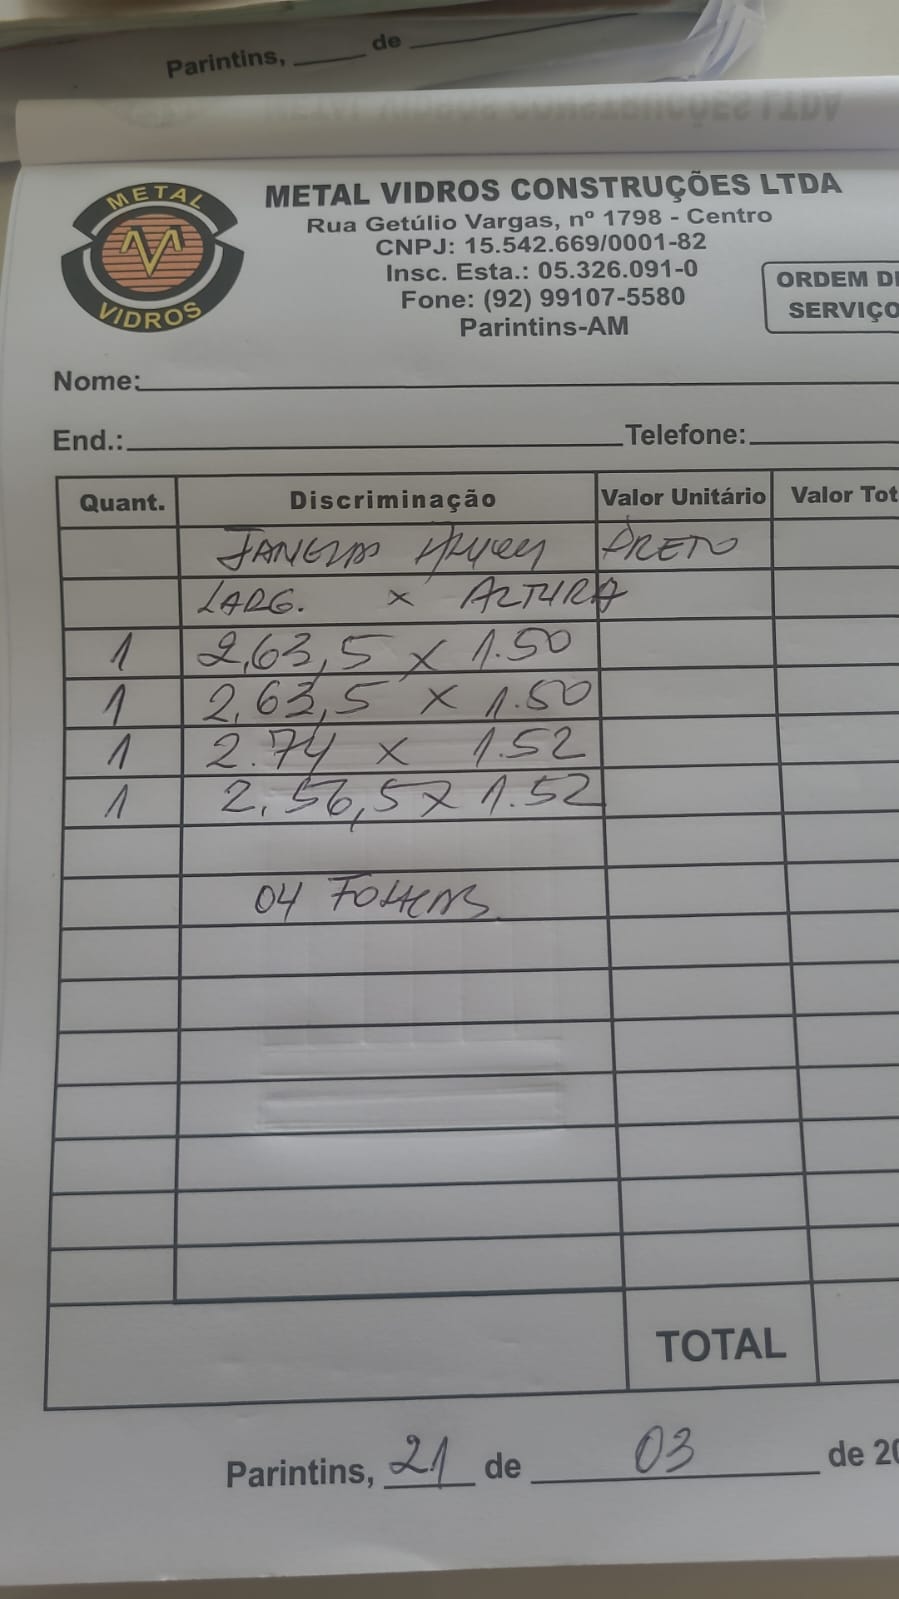 Parintins, ____ de ____
METAL VIDROS CONSTRUÇÕES LTDA
METAL
VIDROS
METAL VIDROS CONSTRUÇÕES LTDA
Rua Getúlio Vargas, nº 1798 - Centro
CNPJ: 15.542.669/0001-82
Insc. Esta.: 05.326.091-0
Fone: (92) 99107-5580
Parintins-AM
ORDEM DE
SERVIÇO
Nome:
End.: Telefone:
Quant. Discriminação Valor Unitário Valor Tot
JANELAS PRETO
LARG. x ALTURA
1 2,63,5 x 1.50
1 2,63,5 x 1.50
1 2.74 x 1.52
1 2.56,5 x 1.52
04 FOLHAS
TOTAL
Parintins, 21 de 03 de 20